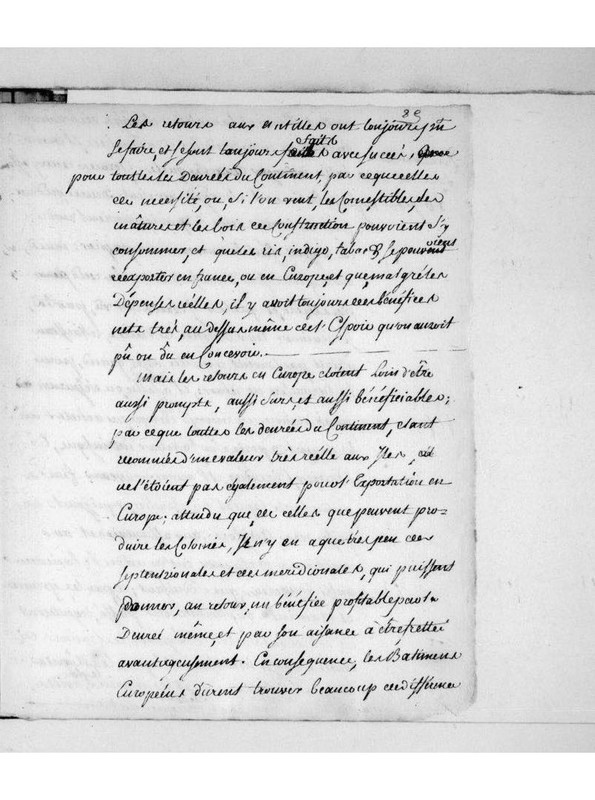 89
Les retours aux antilles ont toujours pû
se faire et se sont toujours faits avec succès,
pour toutes les Denrées du Continent, par ce que celles
de nécessité, ou, si l'on veut, les Comestibles, les
mâtures et les bois de Construction pouvoient s'y
consommer, et que les ris, indigo, tabac & se pouvoient
réexporter en france, ou en Europe, et que, malgré les
Dépenses réelles, il y avoit toujours des bénéfices
nets très, au dessus même de l'Espoir qu'on auroit
pû ou dû en Concevoir.
Mais les retours en Europe étoient Loin d'être
aussi prompts, aussi surs, et aussi bénéficiables;
par ce que toutes les denrées du Continent, étant
reconnües d'une valeur très réelle aux Isles,
ne l'étoient pas également pour l'Exportation en
Europe; attendu que, de celles que peuvent pro-
duire les Colonies, Il n'y en a que très peu des
septentrionales et des meridionales, qui puissent
donner, au retour, un bénéfice profitable par la
Denrée même, et par son aisance à être frettée
avantageusement. En conséquence, les Batimens
Européens durent trouver beaucoup de différence